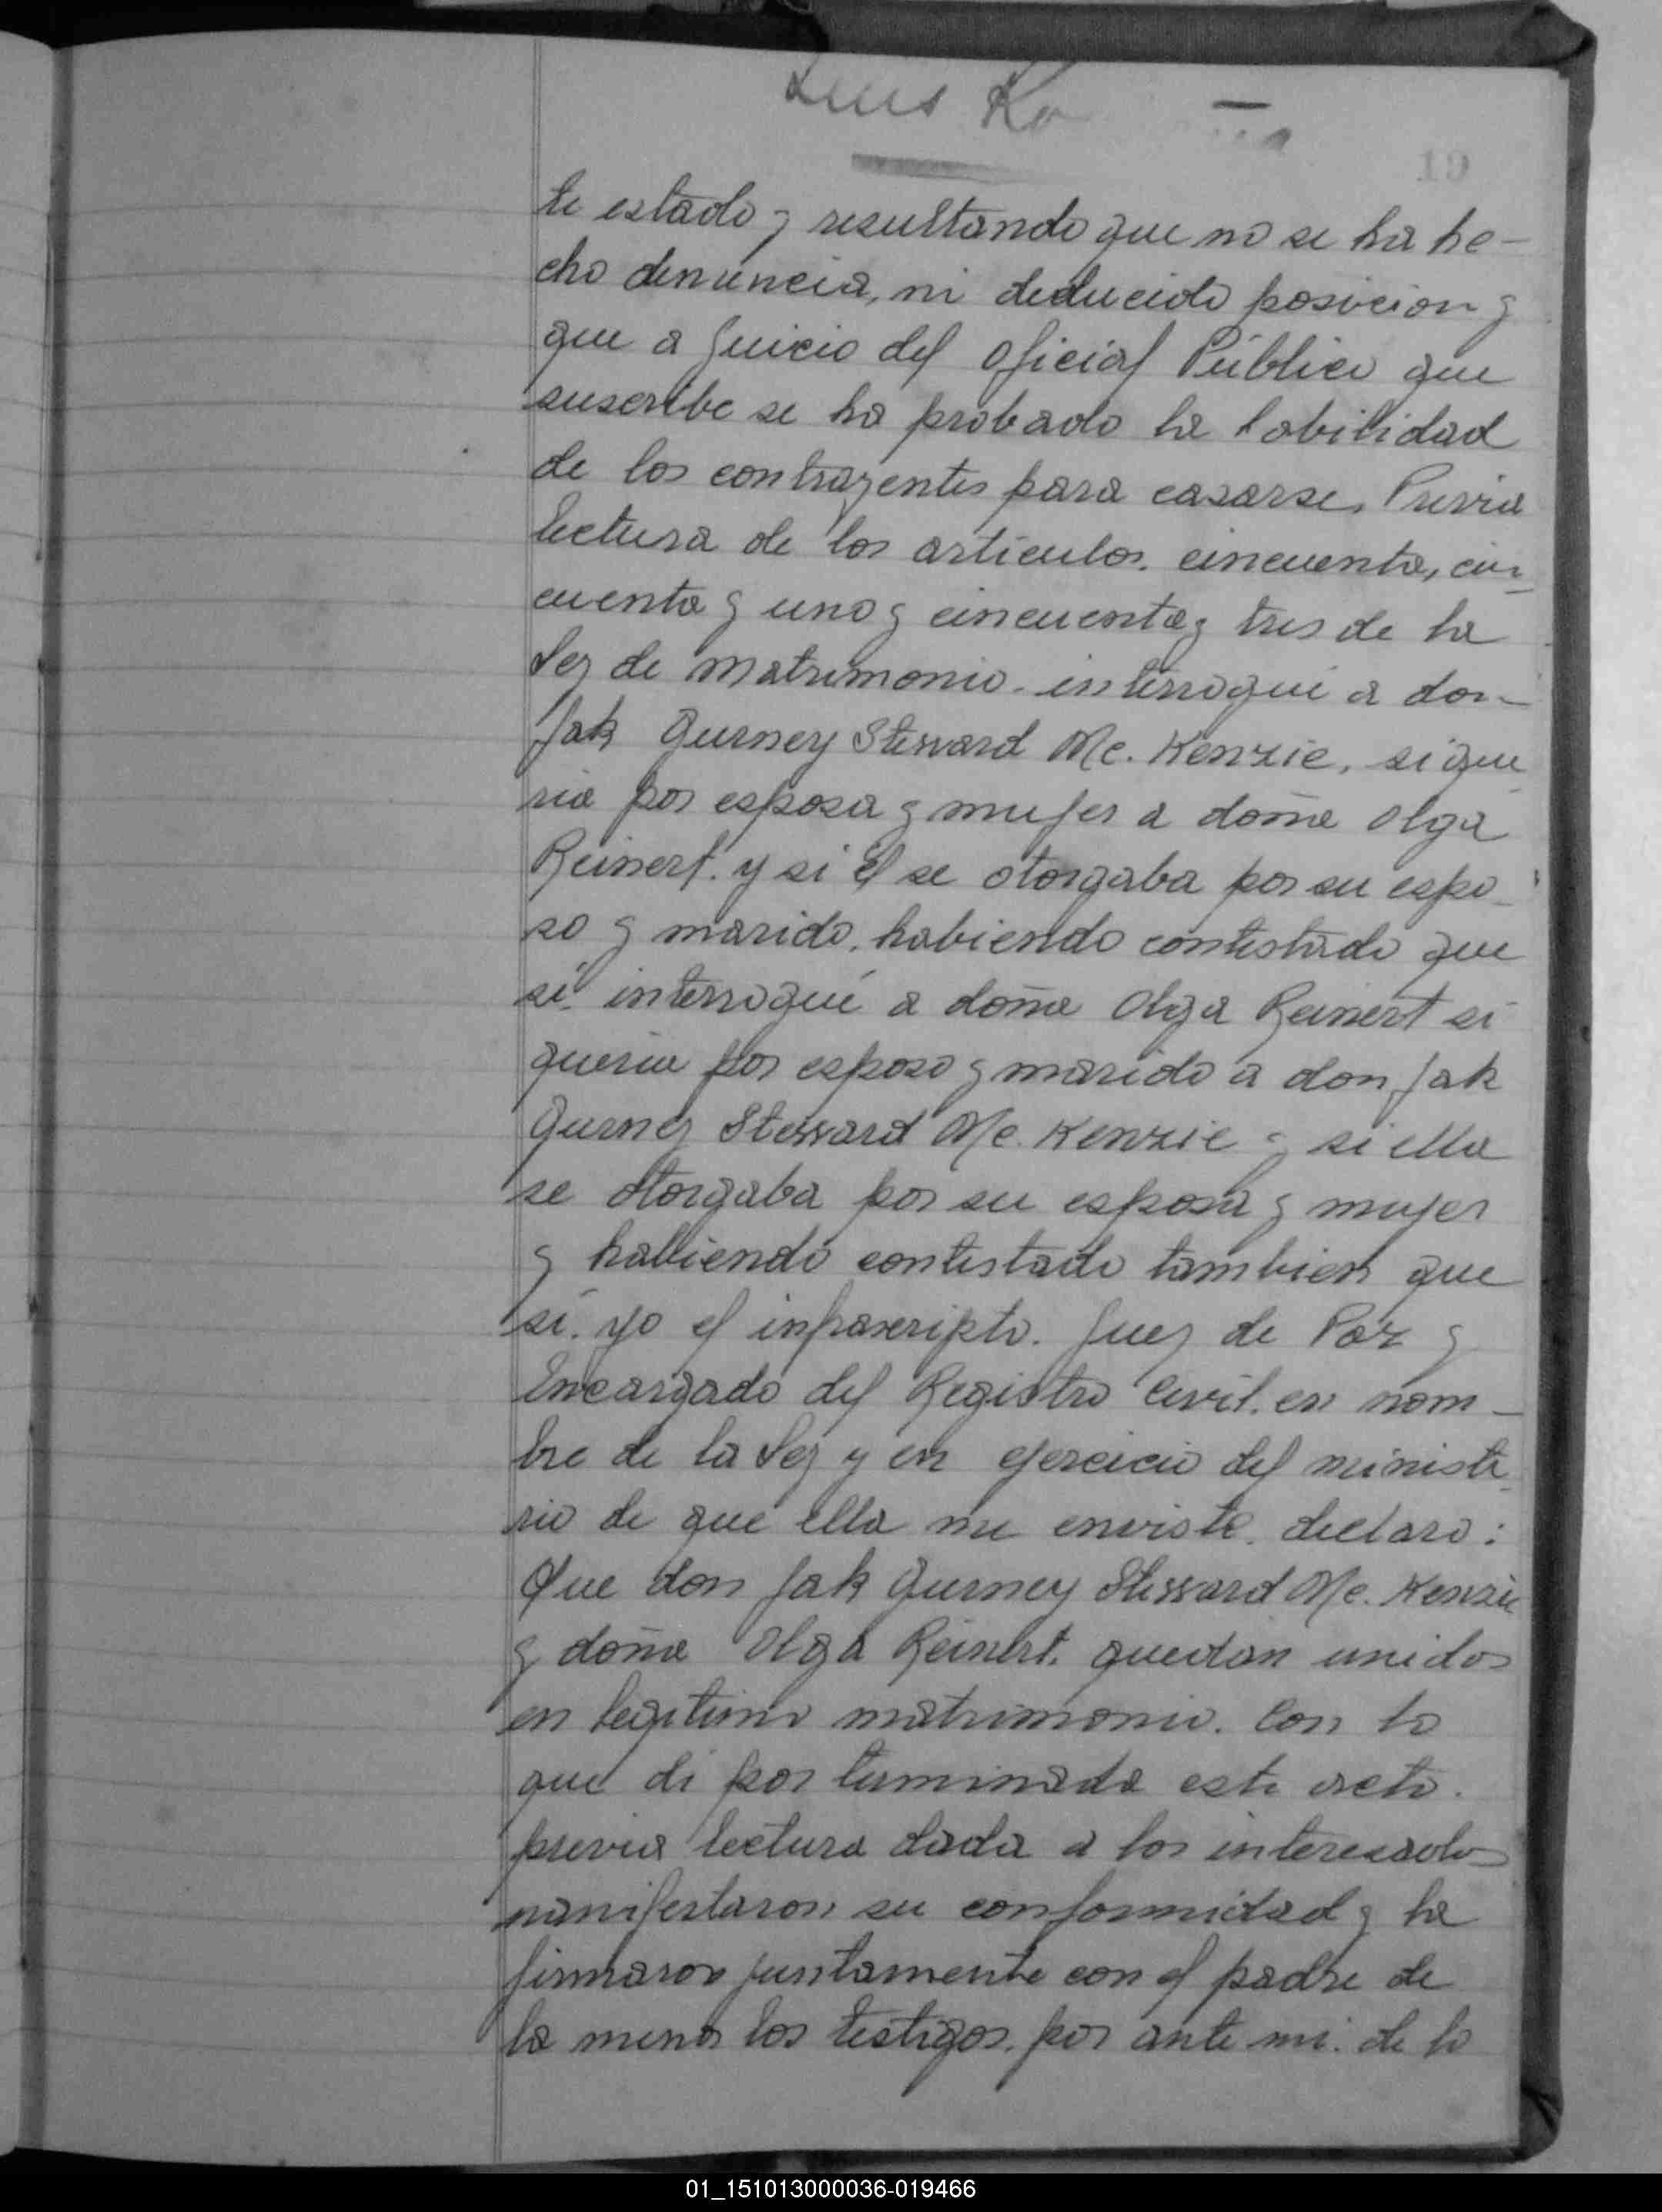 Luis Ro
19
te estado y resultando que no se ha he-
cho denuncia, ni deducido posicion y
que a juicio del oficial Público que
suscribe se ha probado la habilidad
de los contrayentes para casarse, Previa
lectura de los articulos, cincuenta, cin-
cuenta y uno y cincuenta y tres de la
Ley de Matrimonio. interrogué a don
Jak Gurney Steward Mc. Kenzie, si que
ria por esposa y mujer a doña Olga
Reinert. y si él se otorgaba por su espo-
so y marido, habiendo contestado que
sí. interrogué a doña Olga Reinert si
queria por esposo y marido a don Jak
Gurney Steward Mc. Kenzie y si ella
se otorgaba por su esposa y mujer
y habiendo contestado tambien que
sí. yo el infrascripto. Juez de Paz y
Encargado del Registro Civil. en nom-
bre de la Ley y en ejercicio del ministe-
rio de que ella me enviste. declaro:
Que don Jak Gurney Steward Mc. Kenzie
y doña Olga Reinert. quedan unidos
en legitimo matrimonio. Con lo
que di por terminada este acto.
previa lectura dada a los interesados
manifestaron su conformidad y la
firmaron juntamente con el padre de
la menor los testigos. por ante mi. de lo
01_151013000036-019466